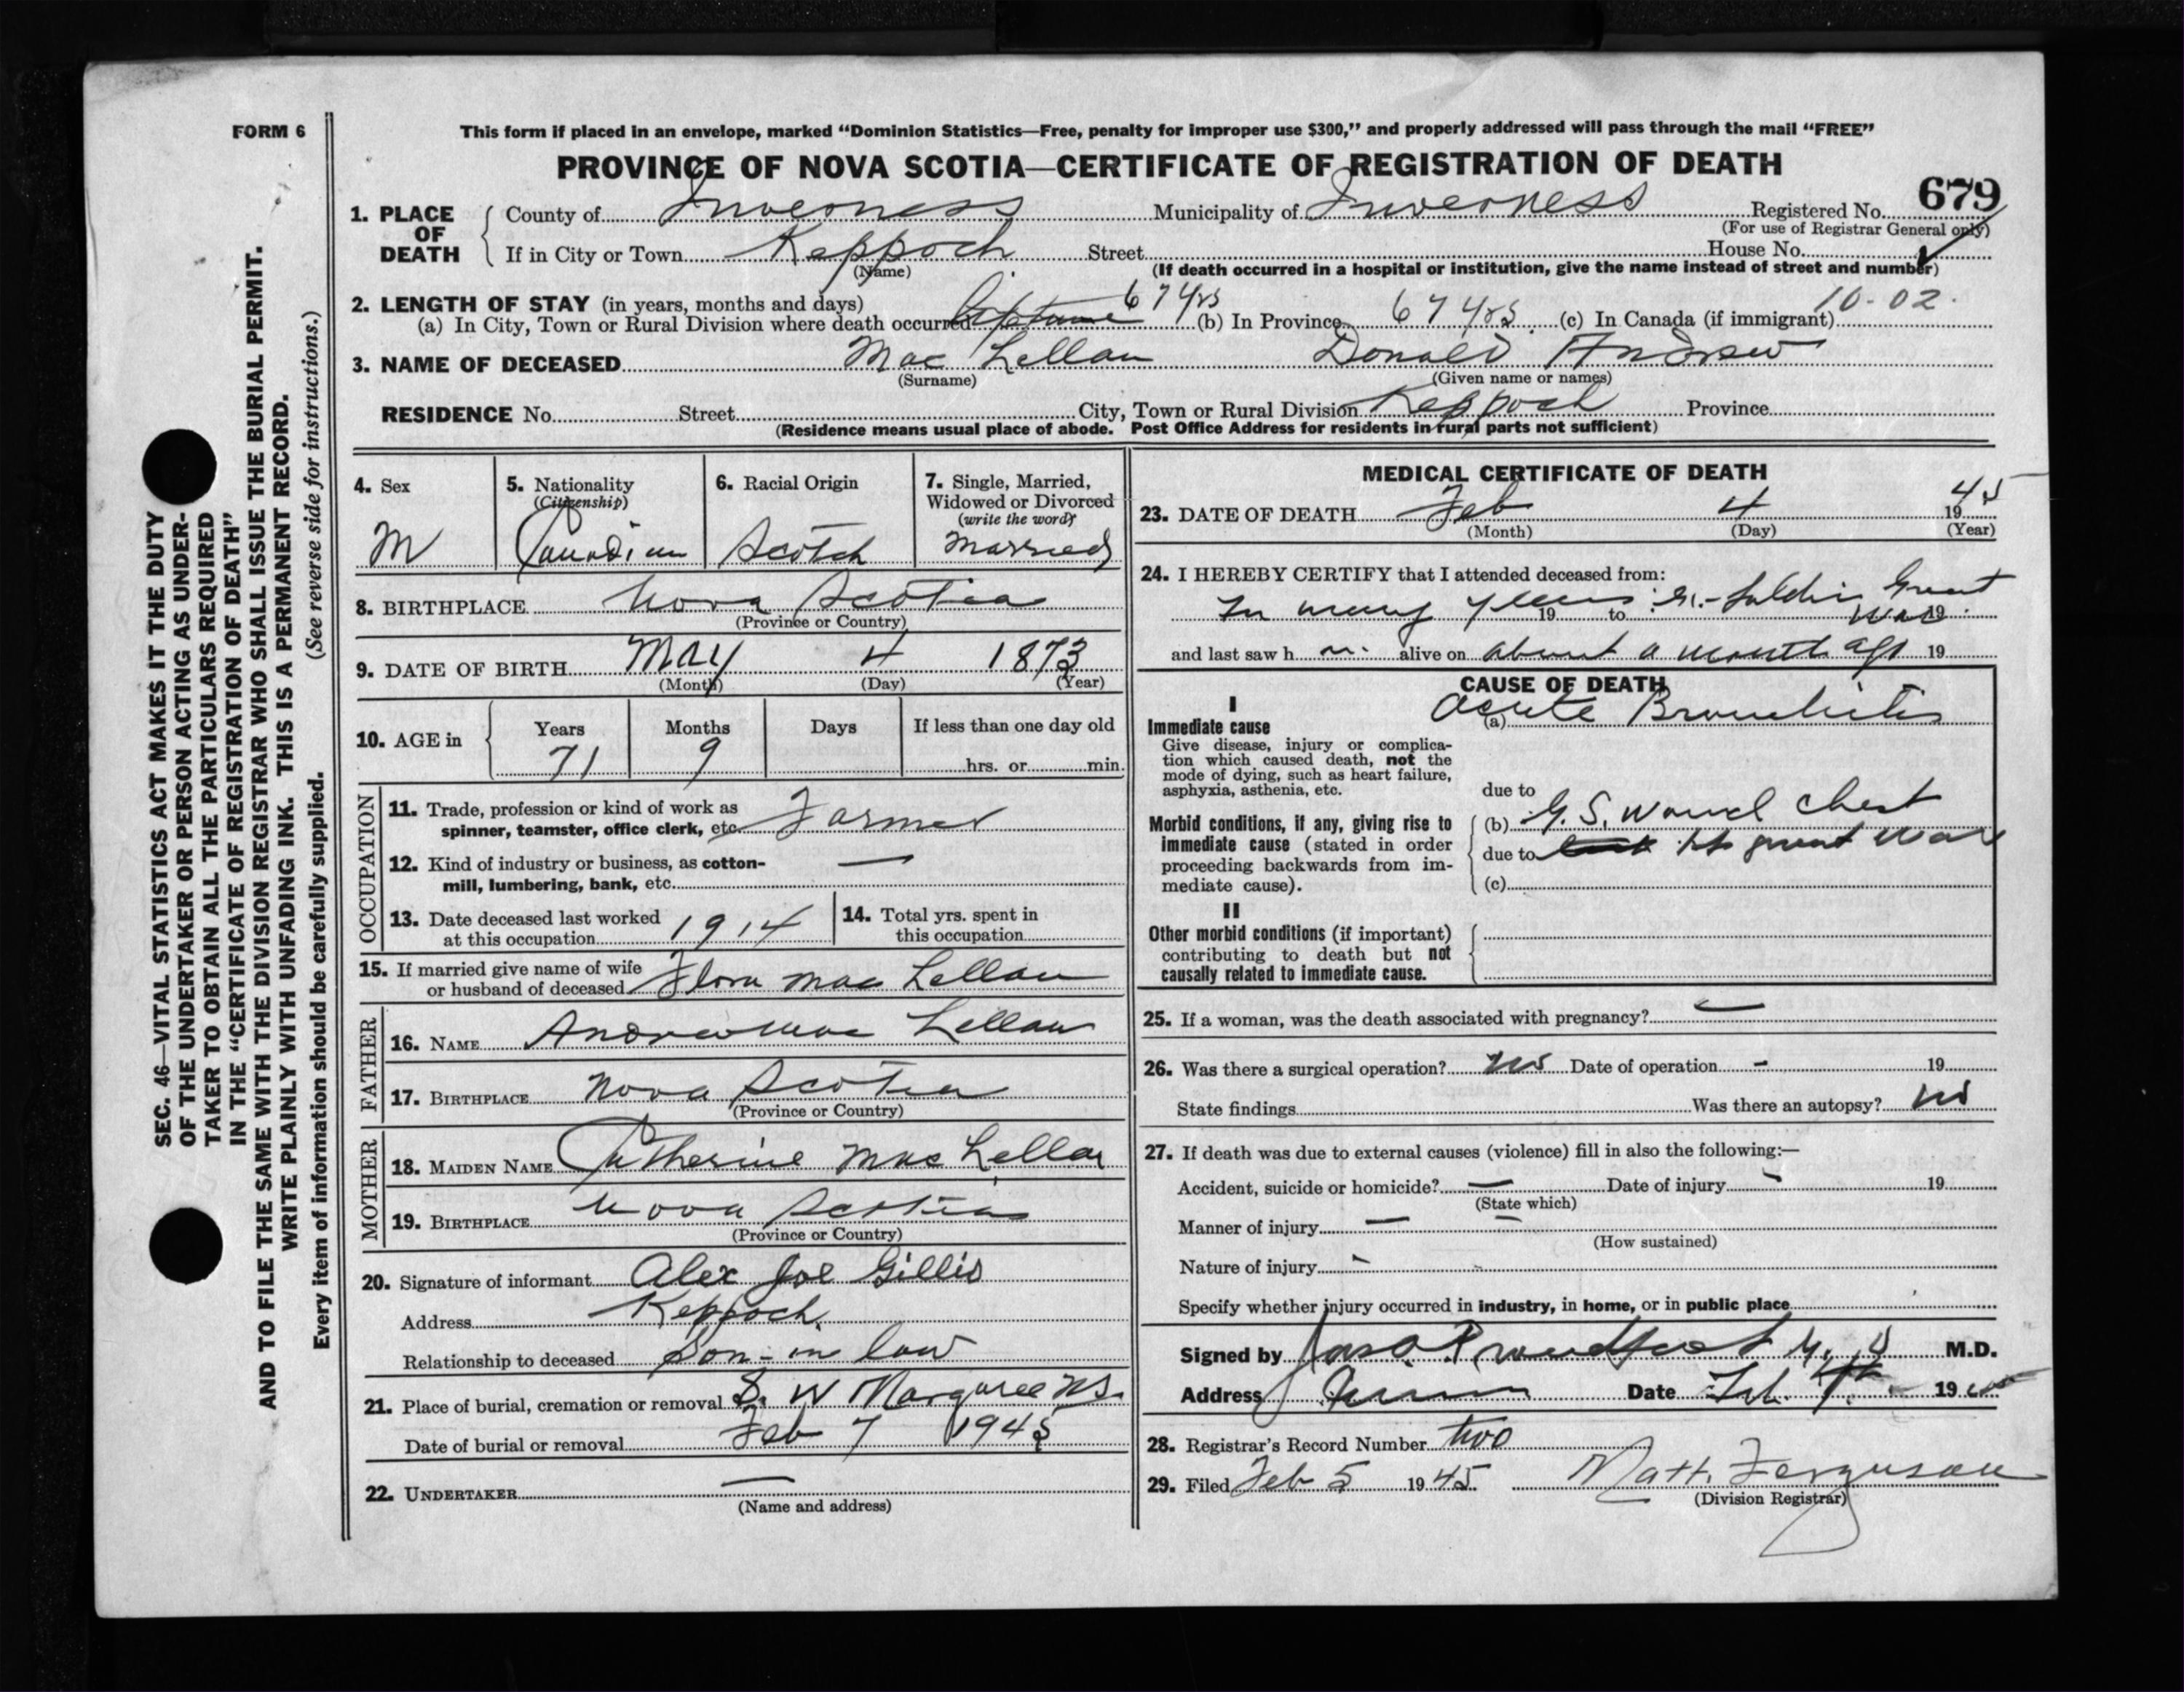 FORM 6
This form if placed in an envelope, marked “Dominion Statistics—Free, penalty for improper use $300,” and properly addressed will pass through the mail “FREE”
PROVINCE OF NOVA SCOTIA—CERTIFICATE OF REGISTRATION OF DEATH
679
1. PLACE OF DEATH
County of Inverness Municipality of Inverness Registered No.
(For use of Registrar General only)
If in City or Town Keppoch Street House No.
(Name)
(If death occurred in a hospital or institution, give the name instead of street and number)
2. LENGTH OF STAY (in years, months and days)
10-02.
(a) In City, Town or Rural Division where death occurred 67 yrs (b) In Province 67 yrs (c) In Canada (if immigrant)
3. NAME OF DECEASED Mac Lellan Donald Andrew
(Surname) (Given name or names)
RESIDENCE No. Street City, Town or Rural Division Keppoch Province
(Residence means usual place of abode. Post Office Address for residents in rural parts not sufficient)
4. Sex
M
5. Nationality
(Citizenship)
Canadian
6. Racial Origin
Scotch
7. Single, Married,
Widowed or Divorced
(write the word)
Married
8. BIRTHPLACE Nova Scotia
(Province or Country)
9. DATE OF BIRTH May 4 1873
(Month) (Day) (Year)
10. AGE in
Years Months Days If less than one day old
71 9 hrs. or min.
OCCUPATION
11. Trade, profession or kind of work as
spinner, teamster, office clerk, etc. Farmer
12. Kind of industry or business, as cotton-
mill, lumbering, bank, etc. —
13. Date deceased last worked
at this occupation 1914
14. Total yrs. spent in
this occupation
15. If married give name of wife
or husband of deceased Flora Mac Lellan
FATHER
16. NAME Andrew Mac Lellan
17. BIRTHPLACE Nova Scotia
(Province or Country)
MOTHER
18. MAIDEN NAME Catherine Mac Lellan
19. BIRTHPLACE Nova Scotia
(Province or Country)
20. Signature of informant Alex Joe Gillis
Address Keppoch.
Relationship to deceased Son-in law
21. Place of burial, cremation or removal S. W Margaree NS.
Date of burial or removal Feb 7 1945
22. UNDERTAKER —
(Name and address)
MEDICAL CERTIFICATE OF DEATH
23. DATE OF DEATH Feb 4 1945
(Month) (Day) (Year)
24. I HEREBY CERTIFY that I attended deceased from:
many years 19 to Great
War 19
and last saw h m. alive on about a month ago 19
CAUSE OF DEATH
I
Immediate cause
Give disease, injury or complica-
tion which caused death, not the
mode of dying, such as heart failure,
asphyxia, asthenia, etc.
(a) Acute Bronchitis
due to
Morbid conditions, if any, giving rise to
immediate cause (stated in order
proceeding backwards from im-
mediate cause).
(b) G. S. Wound Chest
due to great War
(c)
II
Other morbid conditions (if important)
contributing to death but not
causally related to immediate cause.
25. If a woman, was the death associated with pregnancy? —
26. Was there a surgical operation? no Date of operation - 19
State findings Was there an autopsy? no
27. If death was due to external causes (violence) fill in also the following:—
Accident, suicide or homicide? — Date of injury - 19
(State which)
Manner of injury —
(How sustained)
Nature of injury -
Specify whether injury occurred in industry, in home, or in public place
Signed by Jas. O. Proudfoot M. D M.D.
Address Date Feb. 1945
28. Registrar's Record Number two
29. Filed Feb 5 1945 Matt. Ferguson
(Division Registrar)
SEC. 46—VITAL STATISTICS ACT MAKES IT THE DUTY
OF THE UNDERTAKER OR PERSON ACTING AS UNDER-
TAKER TO OBTAIN ALL THE PARTICULARS REQUIRED
IN THE “CERTIFICATE OF REGISTRATION OF DEATH”
AND TO FILE THE SAME WITH THE DIVISION REGISTRAR WHO SHALL ISSUE THE BURIAL PERMIT.
WRITE PLAINLY WITH UNFADING INK. THIS IS A PERMANENT RECORD.
Every item of information should be carefully supplied. (See reverse side for instructions.)